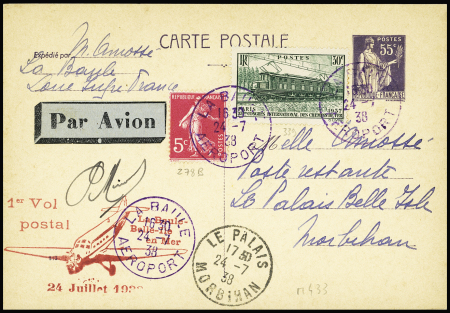 CARTE POSTALE
Expédié par M. Amossé
La Baule
Loire Infre France
Par Avion
POSTES 30c
PARIS 1937
INTERNATIONAL DES CHEMINS DE FER
55c
5c
LA BAULE
24-7
38
AEROPORT
24-7
38
AEROPORT
278B
Melle Amossé
Poste restante
Le Palais Belle Isle
Morbihan
1er Vol
postal
La Baule
Belle-Ile
en Mer
24 Juillet 1938
LA BAULE
38
AEROPORT
LE PALAIS
17 30
24 - 7
38
MORBIHAN